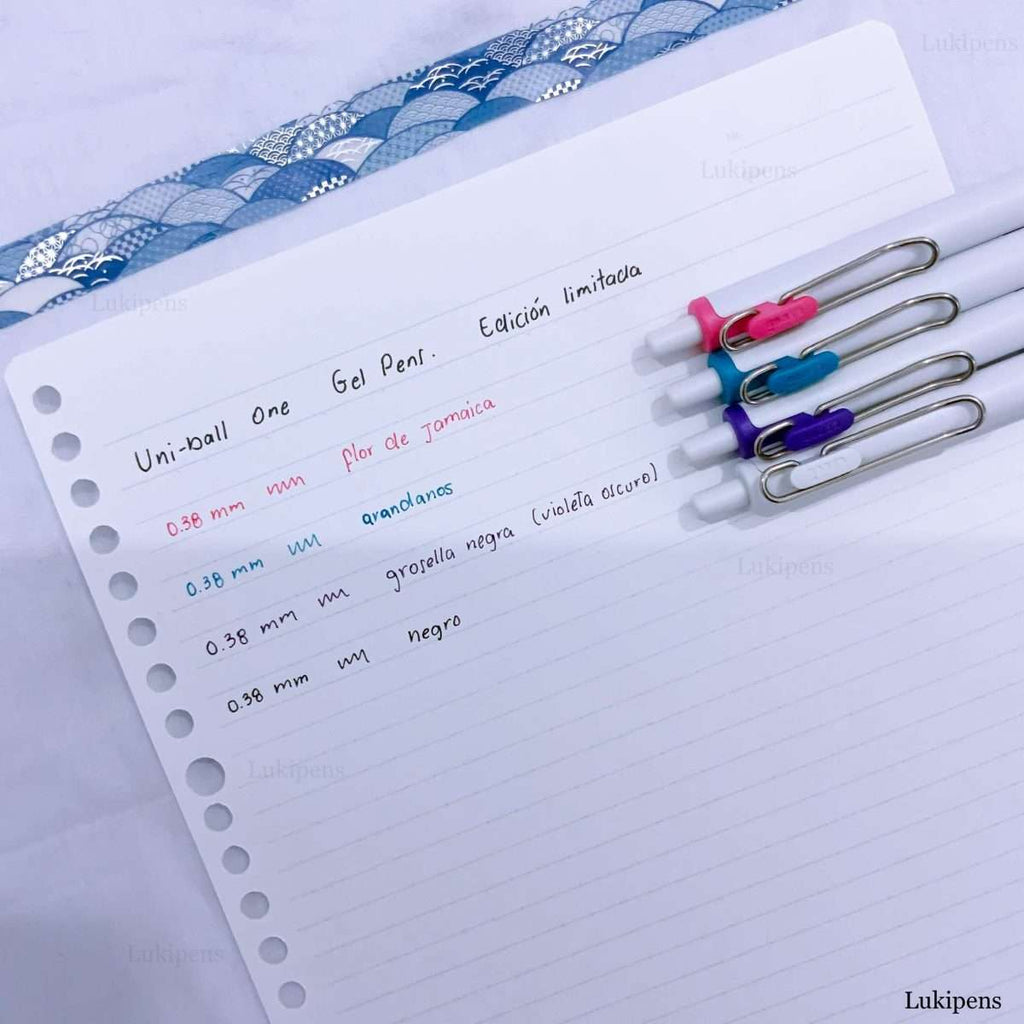 Lukipens
Lukipens
Lukipens
Uni-ball one Gel Pens. Edición limitada
0.38 mm flor de Jamaica
0.38 mm arandanos
0.38 mm grosella negra (violeta oscuro)
0.38 mm negro
Lukipens
Lukipens
Lukipens
Lukipens